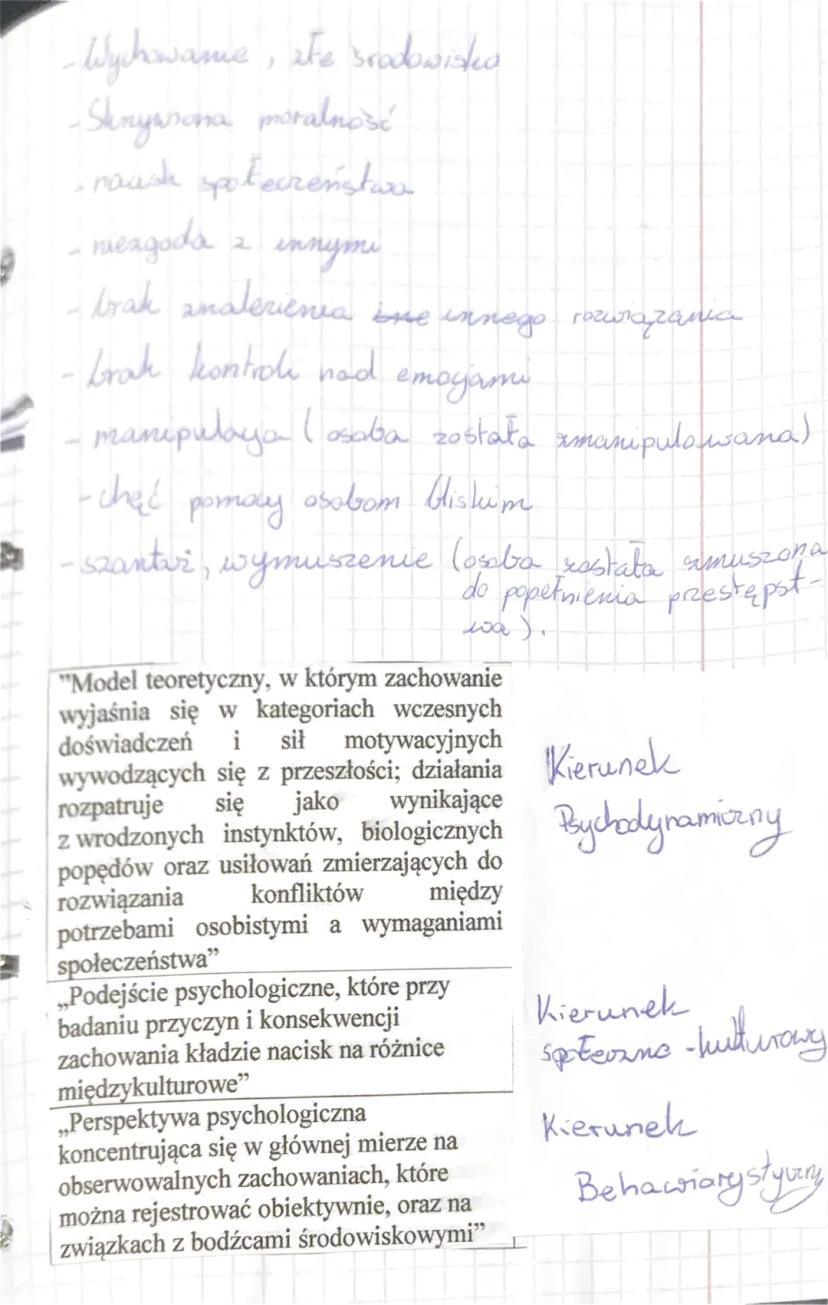 - Wychowanie, złe środowisko
- Skrzywiona moralność
- nacisk społeczeństwa
- niezgoda z innymi
- brak znalezienia ine innego rozwiązania
- brak kontroli nad emocjami
- manipulacja (osoba została zmanipulowana)
- chęć pomocy osobom bliskim
- szantaż, wymuszenie (osoba została zmuszona
do popełnienia przestępst-
wa).
"Model teoretyczny, w którym zachowanie
wyjaśnia się w kategoriach wczesnych
doświadczeń i sił motywacyjnych
wywodzących się z przeszłości; działania
rozpatruje się jako wynikające
z wrodzonych instynktów, biologicznych
popędów oraz usiłowań zmierzających do
rozwiązania konfliktów między
potrzebami osobistymi a wymaganiami
społeczeństwa”
Kierunek
Psychodynamiczny
„Podejście psychologiczne, które przy
badaniu przyczyn i konsekwencji
zachowania kładzie nacisk na różnice
międzykulturowe”
Kierunek
społeczno-kulturowy
„Perspektywa psychologiczna
koncentrująca się w głównej mierze na
obserwowalnych zachowaniach, które
można rejestrować obiektywnie, oraz na
związkach z bodźcami środowiskowymi”
Kierunek
Behawiarystyczny